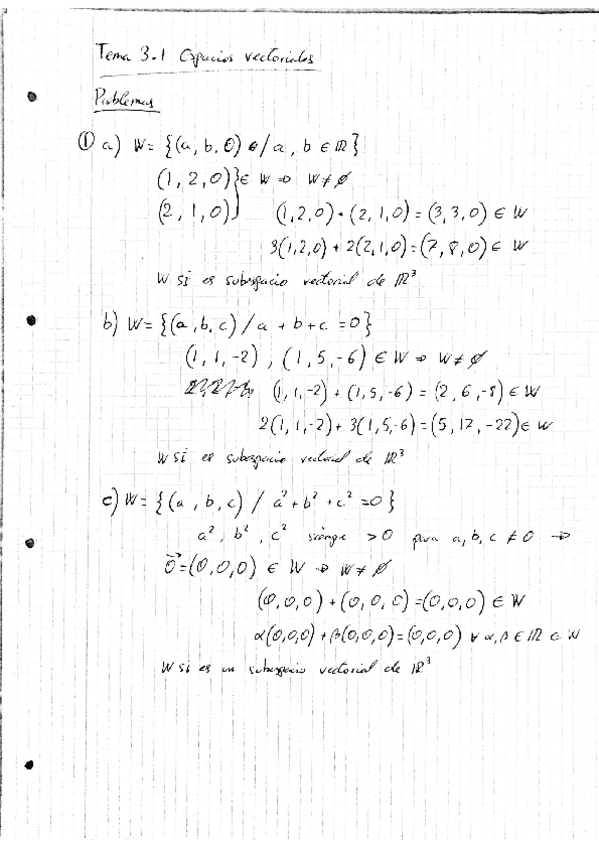 Tema 3.1 Espacios vectoriales
Problemas
① a) W = {(a, b, 0) / a, b ∈ ℝ}
(1, 2, 0)} ∈ W ⇒ W ≠ ∅
(2, 1, 0)} (1,2,0) + (2,1,0) = (3,3,0) ∈ W
3(1,2,0) + 2(2,1,0) = (7,8,0) ∈ W
W sí es subespacio vectorial de ℝ³
b) W = {(a,b,c) / a + b + c = 0}
(1, 1, -2), (1, 5, -6) ∈ W ⇒ W ≠ ∅
(1, 1, -2) + (1, 5, -6) = (2, 6, -8) ∈ W
2(1, 1, -2) + 3(1,5,-6) = (5, 17, -22) ∈ W
W sí es subespacio vectorial de ℝ³
c) W = {(a, b, c) / a² + b² + c² = 0}
a², b², c² siempre > 0 para a, b, c ≠ 0 ⇒
0⃗ = (0,0,0) ∈ W ⇒ W ≠ ∅
(0,0,0) + (0,0,0) = (0,0,0) ∈ W
α(0,0,0) + β(0,0,0) = (0,0,0) ∀ α,β ∈ ℝ ∈ W
W sí es un subespacio vectorial de ℝ³